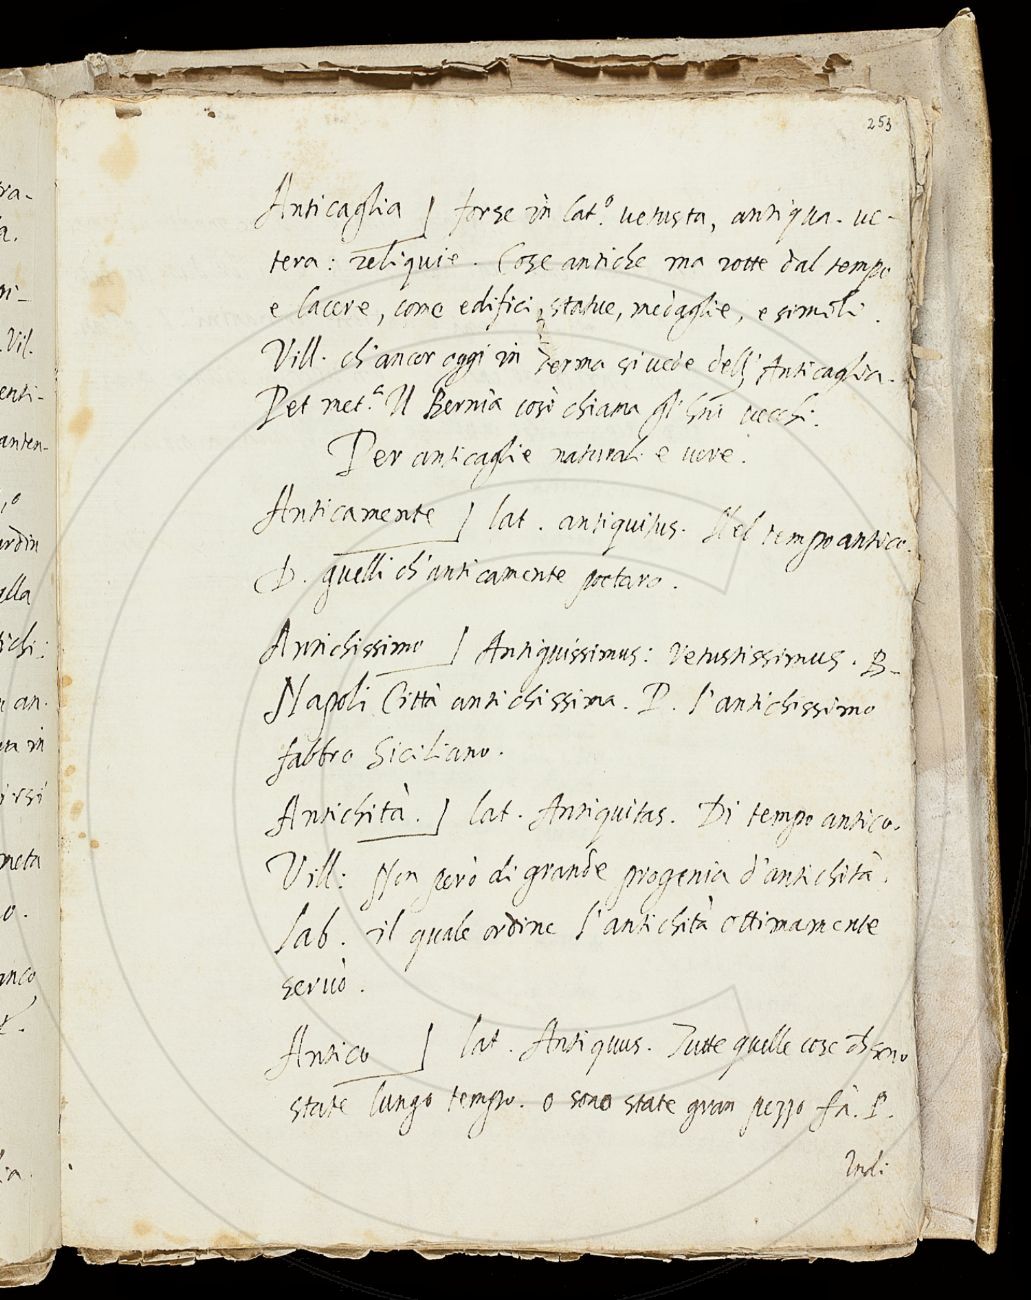 253
Anticaglia ] forse in lat.º vetusta, antiqua. ve-
tera: reliquie. Cose antiche ma rotte dal tempo
e lacere, come edifici, statue, medaglie, e simili.
Vill. ch'ancor oggi in si vede dell' Anticaglia.
Per met.ª Il Bernia così chiama gli vecchi.
Per anticaglie naturali e vere.
Anticamente ] lat. antiquitus. Nel tempo antico.
D. quelli ch'anticamente poetaro.
Antichissimo ] Antiquissimus: Vetustissimus. B.
Napoli Città antichissima. P. l'antichissimo
fabbro Siciliano.
Antichità. ] lat. Antiquitas. Di tempo antico.
Vill: Non però di grande progenia d'antichità.
Lab. il quale ordine l'antichità ottimamente
servò.
Antico ] lat. Antiquus. Tutte quelle cose ch sono
state lungo tempo. o sono state gran pezzo fà. P.
Indi
ra-
a.
ni-
. Vil.
enti-
anten-
ardin
ella
ichi:
n an.
ta in
irsi
meta
o.
anco
ia.